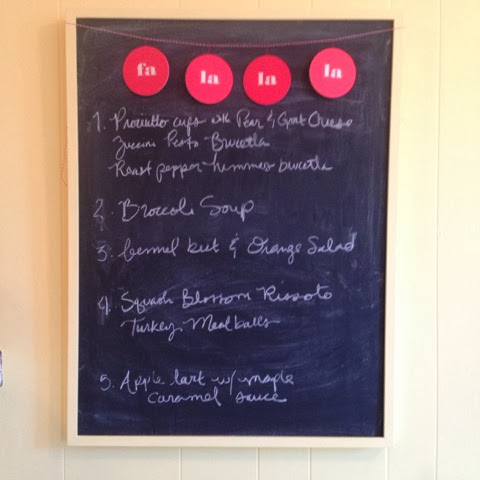 fa la la la
1. Prociutto cups with Pear & Goat Cheese
Zuccini Pesto Brucetta
Roast pepper hummus brucetta
2. Broccoli Soup
3. fennel beet & Orange Salad
4. Squash Blossom Rissoto
Turkey Meatballs
5. Apple tart w/ maple
caramel sauce